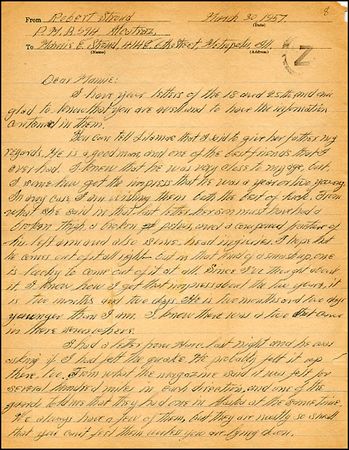 8
From Robert Stroud March 30 1957.
P.M.B. 594 Alcatraz.
To Mamie E. Stroud, E. 6th Street, Metropolis, Ill.
Z
Dear Mamie:
I have your letters of the 18 and 25th, and am
glad to know that you are well and to have the information
contained in them.
You can tell that I said to give her father my
regards. He is a good man, and one of the best friends that I
ever had. I knew that he was very close to my age, but
I some how got the impress that he was a year or two young.
In any case, I am wishing them both the best of luck. From
what she said in that last letter her son must have had a
broken thigh, a broken pelvis, and a compound fracture of
his left arm and also some head injuries. I hope that
he comes out of it all right. But in that kind of a smashup, one
is lucky to come out of it at all. Since I've thought about
it, I know how I got that impress about the two years, it
is two months and two days. He is two months and two days
younger than I am. I knew there was a two that came
in there somewhere.
I had a letter from last night and he was
asking if I had felt the quake. He probably felt it up
there, too. From what the magazine said it was felt for
several hundred miles in each direction, and one of the
guards told me that they had one in Alaska at the same time.
We always have a few of them, but they are mostly so small
that you can't feel them unless you are lying down.